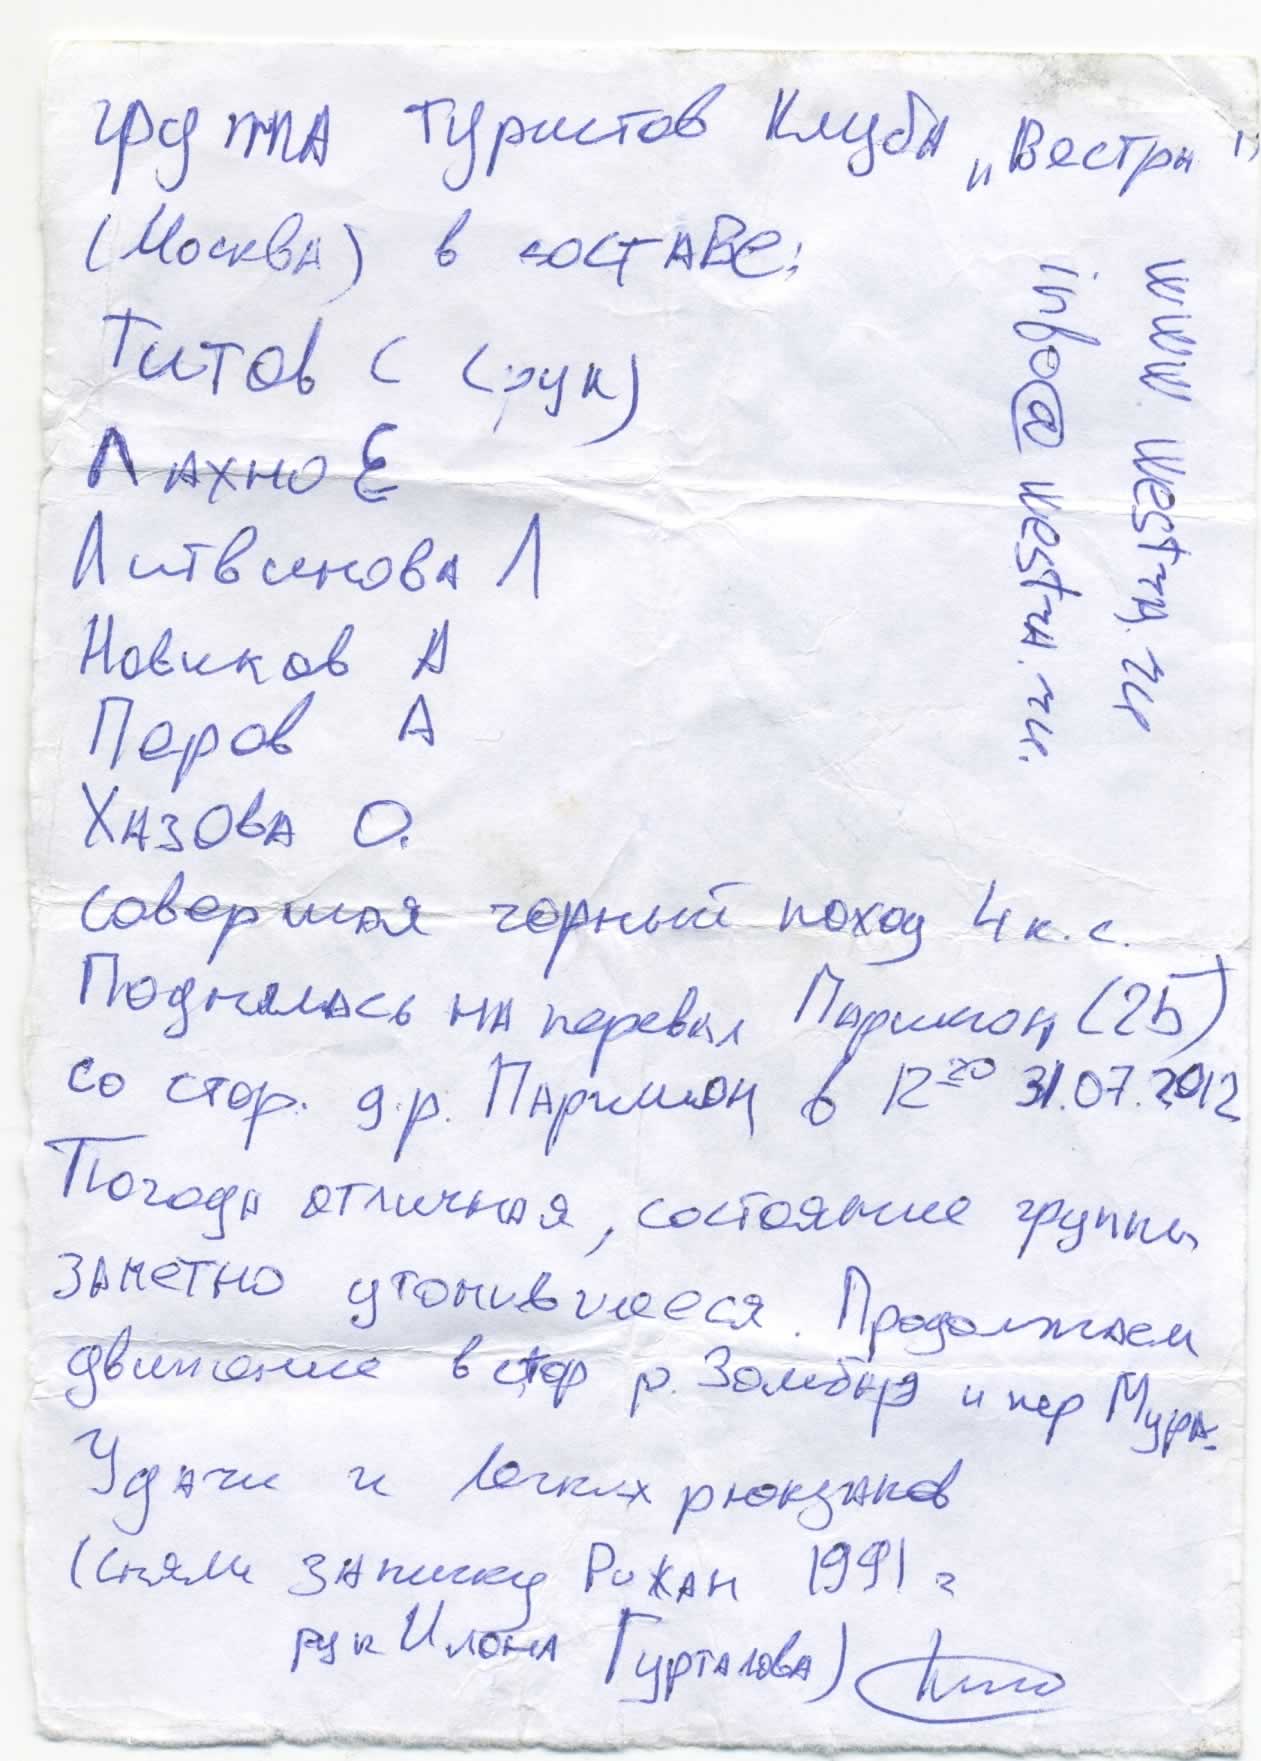 группа туристов клуба „Вестра"
(Москва) в составе:
Титов С (рук)
Лахно Е
Литвинова Л
Новиков А
Перов А
Хазова О.
совершая горный поход 4 к.с.
Поднялась на перевал (2Б)
со стор. д.р. в 12²⁰ 31.07.2012
Погода отличная, состояние группы
заметно утомившееся. Продолжаем
движение в стор р. и пер Мура.
Удачи и легких рюкзаков
(сняли записку 1991 г
рук Илона Гурталова)
www.westra.ru
info@westra.ru.